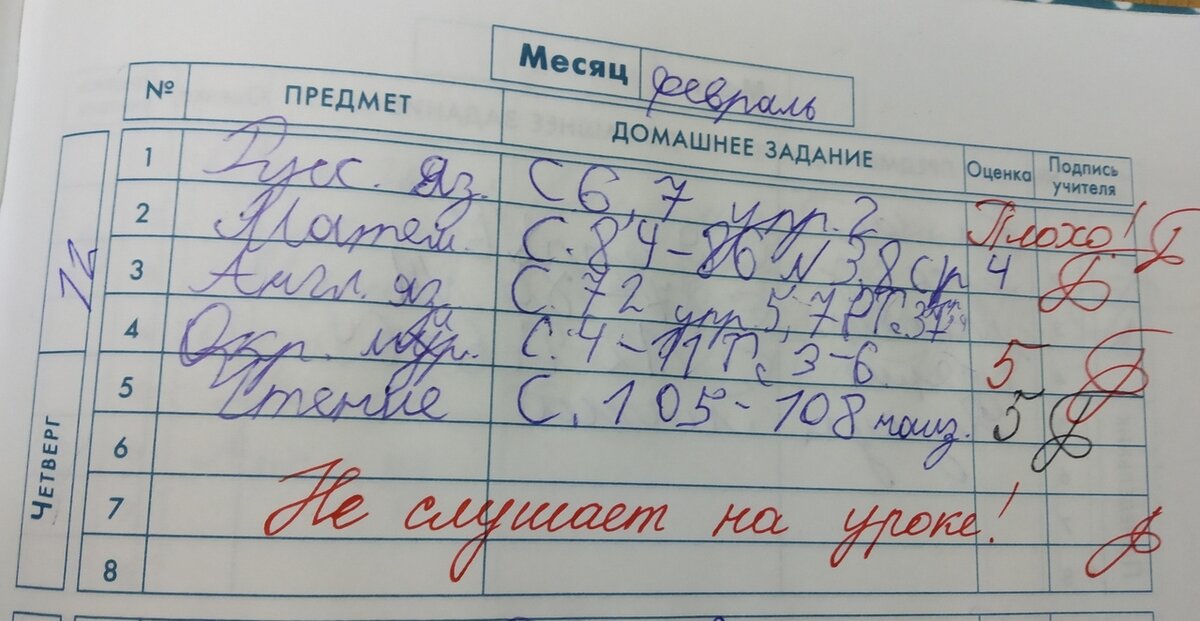 Месяц февраль
№ ПРЕДМЕТ ДОМАШНЕЕ ЗАДАНИЕ Оценка Подпись учителя
1 Русс. яз. С 6, 7 упр. 2 Плохо!
2 Матем. С. 84-86 N 3,8 4
3 Англ. яз. С. 72 упр. 5, 7 РТ с 37
4 Окр. мир. С. 4-11 Т с 3-6. 5
5 Чтение С. 105-108 наиз. 5
6
7 Не слушает на уроке!
8
ЧЕТВЕРГ